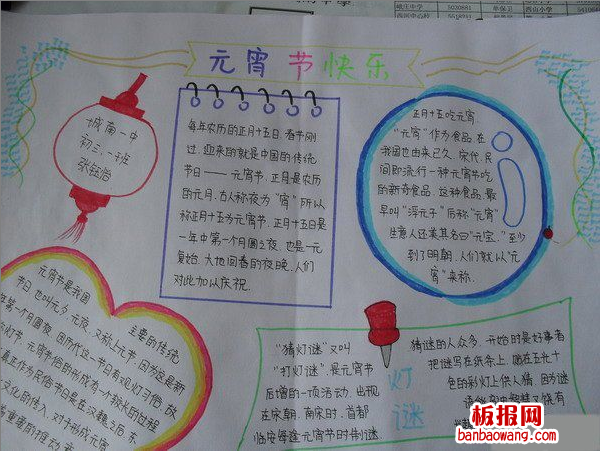 元宵节快乐
城南一中
初三、一班
每年农历的正月十五日,春节刚
过,迎来的就是中国的传统
节日——元宵节.正月是农历
的元月,古人称夜为“宵”所以
称正月十五为元宵节.正月十五日是
一年中第一个月圆之夜,也是一元
复始,大地回春的夜晚.人们
对此加以庆祝.
正月十五吃元宵
“元宵”作为食品,在
我国也由来已久.宋代,民
间即流行一种元宵节吃
的新奇食品.这种食品,最
早叫“浮元子”后称“元宵”
生意人还美其名曰“元宝.”至少
到了明朝,人们就以“元
宵”来称.
元宵节是我国 主要的传统
节日,也叫元夕、元夜,又称上元节,因为这是新
年第一个月圆夜.因历代这一节日有观灯习俗,故
称灯节.元宵节俗的形成有一个较长的过程
真正作为民俗节日是在汉魏之后.东
文化的传入,对于形成元宵
“猜灯谜”又叫
“打灯谜”是元宵节
后增的一项活动,出现
在宋朝.南宋时,首都
临安每逢元宵节时制谜.
灯
谜
猜谜的人众多.开始时是好事者
把谜写在纸条上,贴在五光十
色的彩灯上供人猜.因为谜
板报网
banbaowang.com